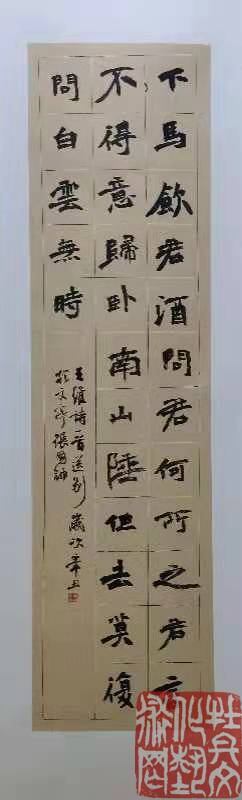 下馬飲君酒問君何所之君言
不得意歸卧南山陲但去莫復
問白雲無時
王維詩一首送别歲次辛丑